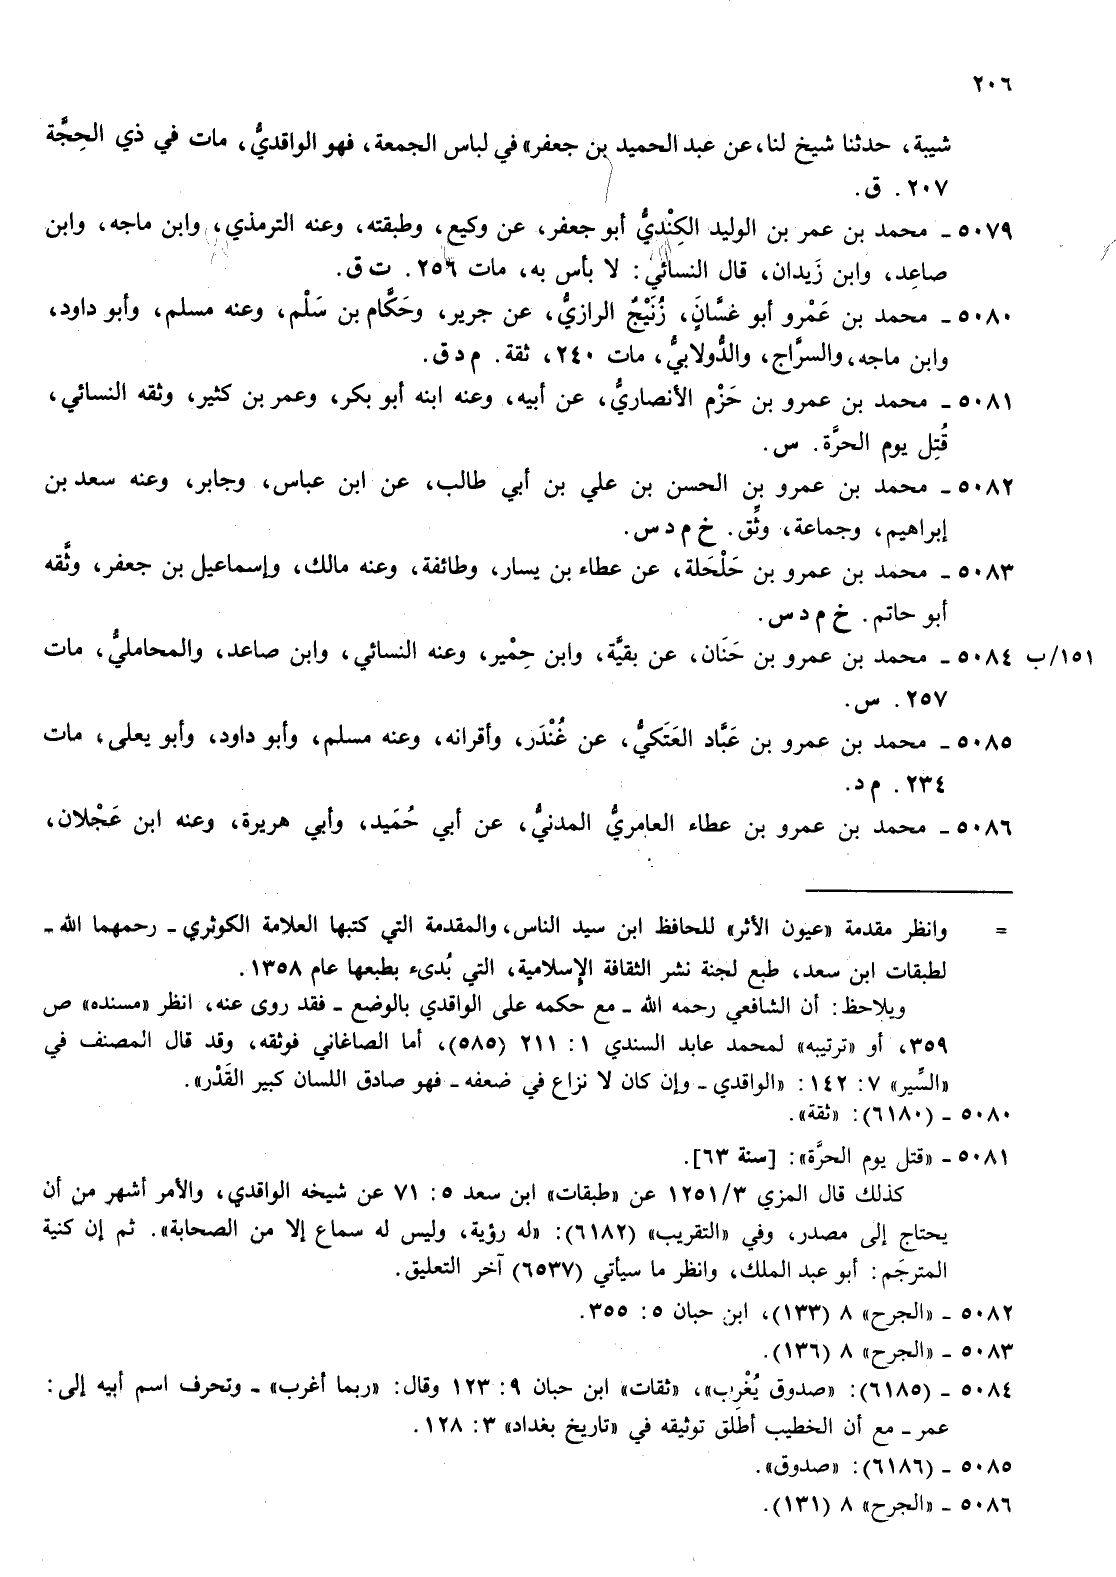 ٢٠٦
شيبة، حدثنا شيخ لنا، عن عبد الحميد بن جعفر» في لباس الجمعة، فهو الواقديُّ، مات في ذي الحِجَّة
٢٠٧. ق.
٥٠٧٩ ـ محمد بن عمر بن الوليد الكِنْديُّ أبو جعفر، عن وكيع، وطبقته، وعنه الترمذي، وابن ماجه، وابن
صاعِد، وابن زَيدان، قال النسائي: لا بأس به، مات ٢٥٦. ت ق.
٥٠٨٠ ـ محمد بن عَمْرو أبو غسَّان، زُنَيْجٌ الرازيُّ، عن جرير، وحَكَّام بن سَلْم، وعنه مسلم، وأبو داود،
وابن ماجه، والسرَّاج، والدُّولابيُّ، مات ٢٤٠، ثقة. م د ق.
٥٠٨١ ـ محمد بن عمرو بن حَزْم الأنصاريُّ، عن أبيه، وعنه ابنه أبو بكر، وعمر بن كثير، وثقه النسائي،
قُتِل يوم الحرَّة. س.
٥٠٨٢ ـ محمد بن عمرو بن الحسن بن علي بن أبي طالب، عن ابن عباس، وجابر، وعنه سعد بن
إبراهيم، وجماعة، وثِّق. خ م د س.
٥٠٨٣ ـ محمد بن عمرو بن حَلْحَلة، عن عطاء بن يسار، وطائفة، وعنه مالك، وإسماعيل بن جعفر، وثَّقه
أبو حاتم. خ م د س.
١٥١/ب ٥٠٨٤ ـ محمد بن عمرو بن حَنَان، عن بقيَّة، وابن حِمْير، وعنه النسائي، وابن صاعد، والمحامليُّ، مات
٢٥٧. س.
٥٠٨٥ ـ محمد بن عمرو بن عَبَّاد العَتَكيُّ، عن غُنْدَر، وأقرانه، وعنه مسلم، وأبو داود، وأبو يعلى، مات
٢٣٤. م د.
٥٠٨٦ ـ محمد بن عمرو بن عطاء العامريُّ المدنيُّ، عن أبي حُمَيد، وأبي هريرة، وعنه ابن عَجْلان،
= وانظر مقدمة «عيون الأثر» للحافظ ابن سيد الناس، والمقدمة التي كتبها العلامة الكوثري ـ رحمهما الله ـ
لطبقات ابن سعد، طبع لجنة نشر الثقافة الإسلامية، التي بُدىء بطبعها عام ١٣٥٨.
ويلاحظ: أن الشافعي رحمه الله ـ مع حكمه على الواقدي بالوضع ـ فقد روى عنه، انظر «مسنده» ص
٣٥٩، أو «ترتيبه» لمحمد عابد السندي ١: ٢١١ (٥٨٥)، أما الصاغاني فوثقه، وقد قال المصنف في
«السِّير» ٧: ١٤٢: «الواقدي ـ وإن كان لا نزاع في ضعفه ـ فهو صادق اللسان كبير القَدْر».
٥٠٨٠ ـ (٦١٨٠): «ثقة».
٥٠٨١ ـ «قتل يوم الحرَّة»: [سنة ٦٣].
كذلك قال المزي ١٢٥١/٣ عن «طبقات» ابن سعد ٥: ٧١ عن شيخه الواقدي، والأمر أشهر من أن
يحتاج إلى مصدر، وفي «التقريب» (٦١٨٢): «له رؤية، وليس له سماع إلا من الصحابة». ثم إن كنية
المترجَم: أبو عبد الملك، وانظر ما سيأتي (٦٥٣٧) آخر التعليق.
٥٠٨٢ ـ «الجرح» ٨ (١٣٣)، ابن حبان ٥: ٣٥٥.
٥٠٨٣ ـ «الجرح» ٨ (١٣٦).
٥٠٨٤ ـ (٦١٨٥): «صدوق يُغْرِب»، «ثقات» ابن حبان ٩: ١٢٣ وقال: «ربما أغرب» ـ وتحرف اسم أبيه إلى:
عمر ـ مع أن الخطيب أطلق توثيقه في «تاريخ بغداد» ٣: ١٢٨.
٥٠٨٥ ـ (٦١٨٦): «صدوق».
٥٠٨٦ ـ «الجرح» ٨ (١٣١).